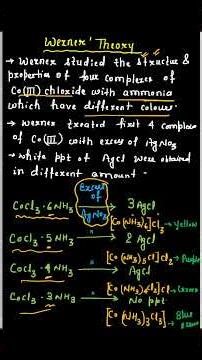 Werner' Theory
→ Werner studied the structure &
properties of four complexes of
Co(III) chloride with ammonia
which have different colours.
→ Werner treated first 4 complex
of Co(III) with excess of AgNO3
→ White ppt of AgCl were obtained
in different amount.
Excess of AgNO3
CoCl3.6NH3 → 3 AgCl
[Co(NH3)6]Cl3 → Yellow
CoCl3.5NH3 " → 2 AgCl
[Co(NH3)5Cl]Cl2 → Purple
CoCl3.4NH3 " → AgCl
[Co(NH3)4Cl2]Cl → Green
CoCl3.3NH3 " → No ppt
[Co(NH3)3Cl3] → Blue